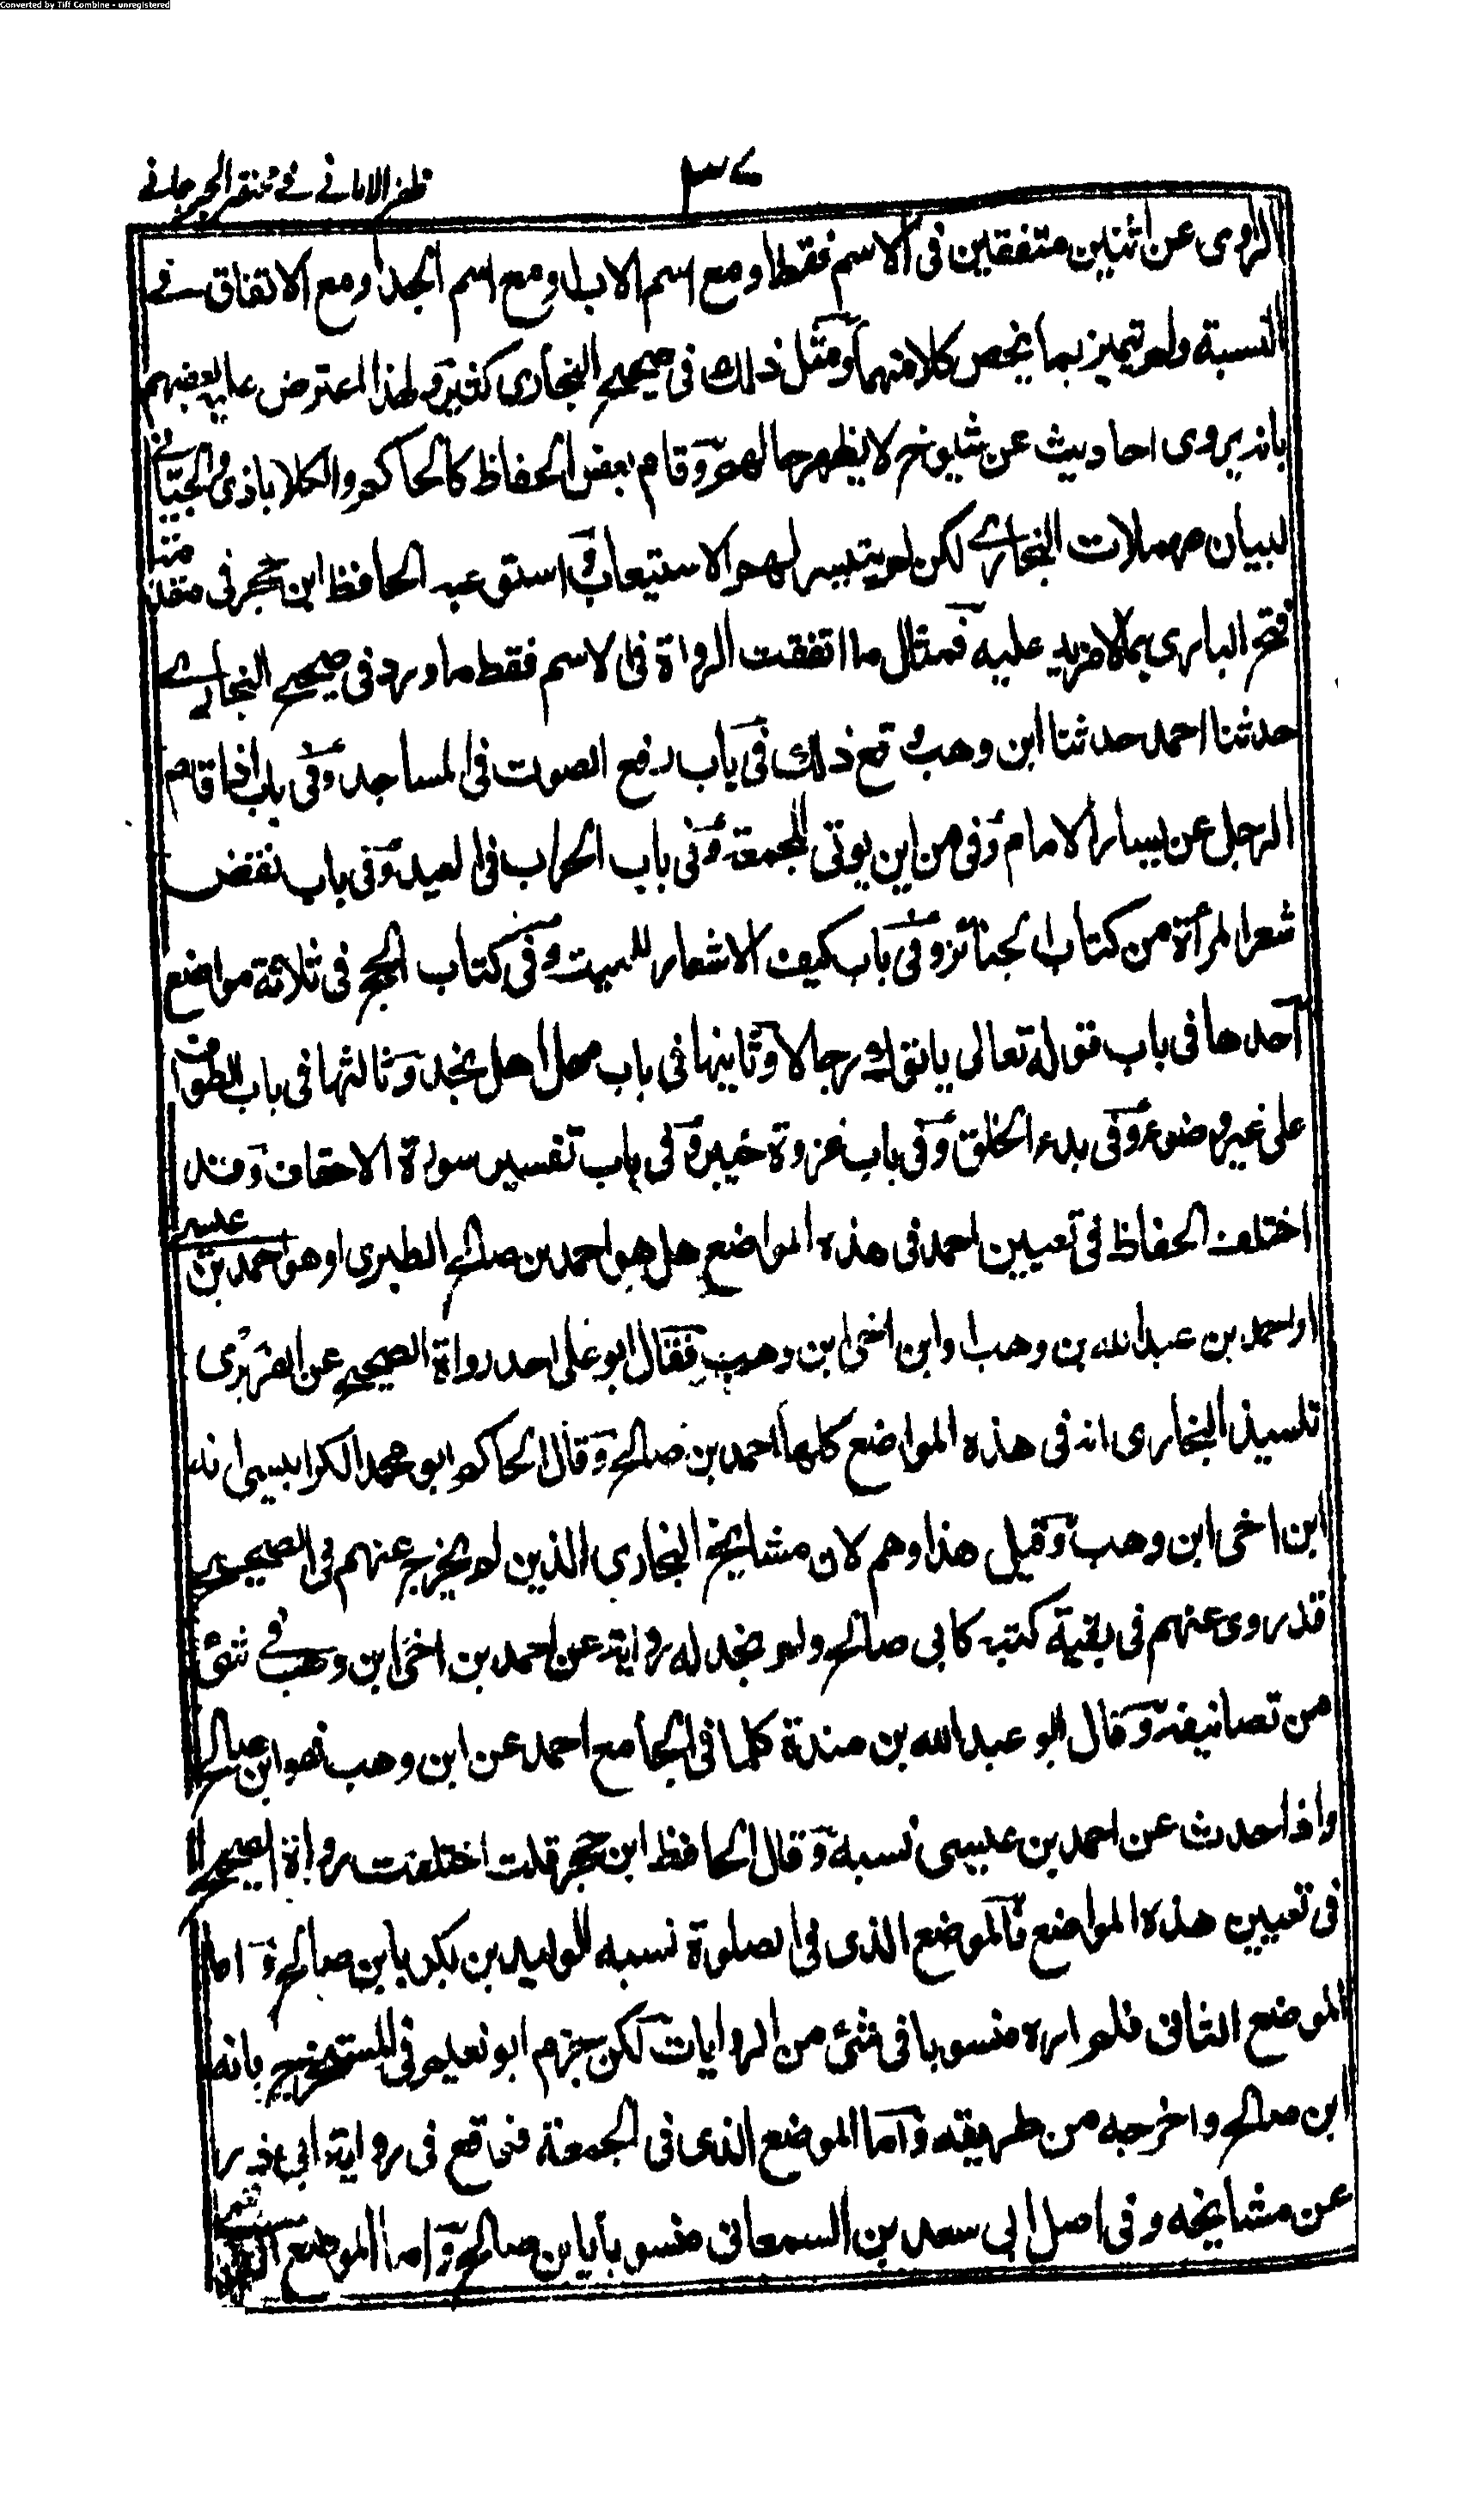 Converted by Tiff Combine - unregistered
٣٧
ظفر الامانى فى مختصر الجرجانى
الراوى عن اثنين متفقين فى الاسم فقط او مع اسم الاب او مع اسم الجد او مع الاتفاق فى
النسبة ولم تميز بما يخص كلا منهما ومثل ذلك فى صحيح البخارى كثير ولهذا اعترض عليه بعضهم
بانه يروى احاديث عن شيوخ لا يظهر حالهم وقام بعض الحفاظ كالحاكم والكلاباذى والجيانى
لبيان مهملات البخارى لكن لم يتيسر لهم الاستيعاب استوعبه الحافظ ابن حجر فى مقدمة
فتح البارى بما لا مزيد عليه فمثال ما اتفقت الرواة فى الاسم فقط ما ورد فى صحيح البخارى
حدثنا احمد حدثنا ابن وهب وقع ذلك فى باب رفع الصوت فى المساجد وفى باب اذا قام
الرجل عن يسار الامام وفى من اين يوتى الجمعة وفى باب الحراب فى العيد وفى باب نقض
شعر المرأة من كتاب الجنائز وفى باب كيف الاشعار للميت وفى كتاب الحج فى ثلاثة مواضع
احدها فى باب قوله تعالى ياتوك رجالا وثانيها فى باب مهل اهل نجد وثالثها فى باب الطواف
على غير وضوء وفى بدء الخلق وفى باب غزوة خيبر وفى باب تفسير سورة الاحقاف وقد
اختلف الحفاظ فى تعيين احمد فى هذه المواضع هل هو احمد بن صالح الطبرى او هو احمد بن عيسى
او احمد بن عبد الله بن وهب او ابن اخى ابن وهب فقال ابو على احد رواة الصحيح عن الفربرى
تلميذ البخارى انه فى هذه المواضع كلها احمد بن صالح وقال الحاكم ابو محمد الكرابيسى انه
ابن اخى ابن وهب وقيل هذا وهم لان مشايخ البخارى الذين لم يخرج عنهم فى الصحيح
قد روى عنهم فى بقية كتبه كابى صالح ولم نجد له رواية عن احمد بن اخى ابن وهب فى شئ
من تصانيفه وقال ابو عبد الله بن مندة كلما فى الجامع احمد عن ابن وهب فهو ابن صالح
واذا حدث عن احمد بن عيسى نسبه وقال الحافظ ابن حجر قلت اختلفت رواة الصحيح
فى تعيين هذه المواضع فالموضع الذى فى الصلوة نسبه الوليد بن بكر بابن صالح واما
الموضع الثانى فلم اره منسوبا فى شئ من الروايات لكن جزم ابو نعيم فى المستخرج بانه
ابن صالح واخرجه من طريقه واما الموضع الذى فى الجمعة فوقع فى رواية ابى ذر
عن مشايخه وفى اصل ابى سعد بن السمعانى منسوبا بابن صالح واما الموضع